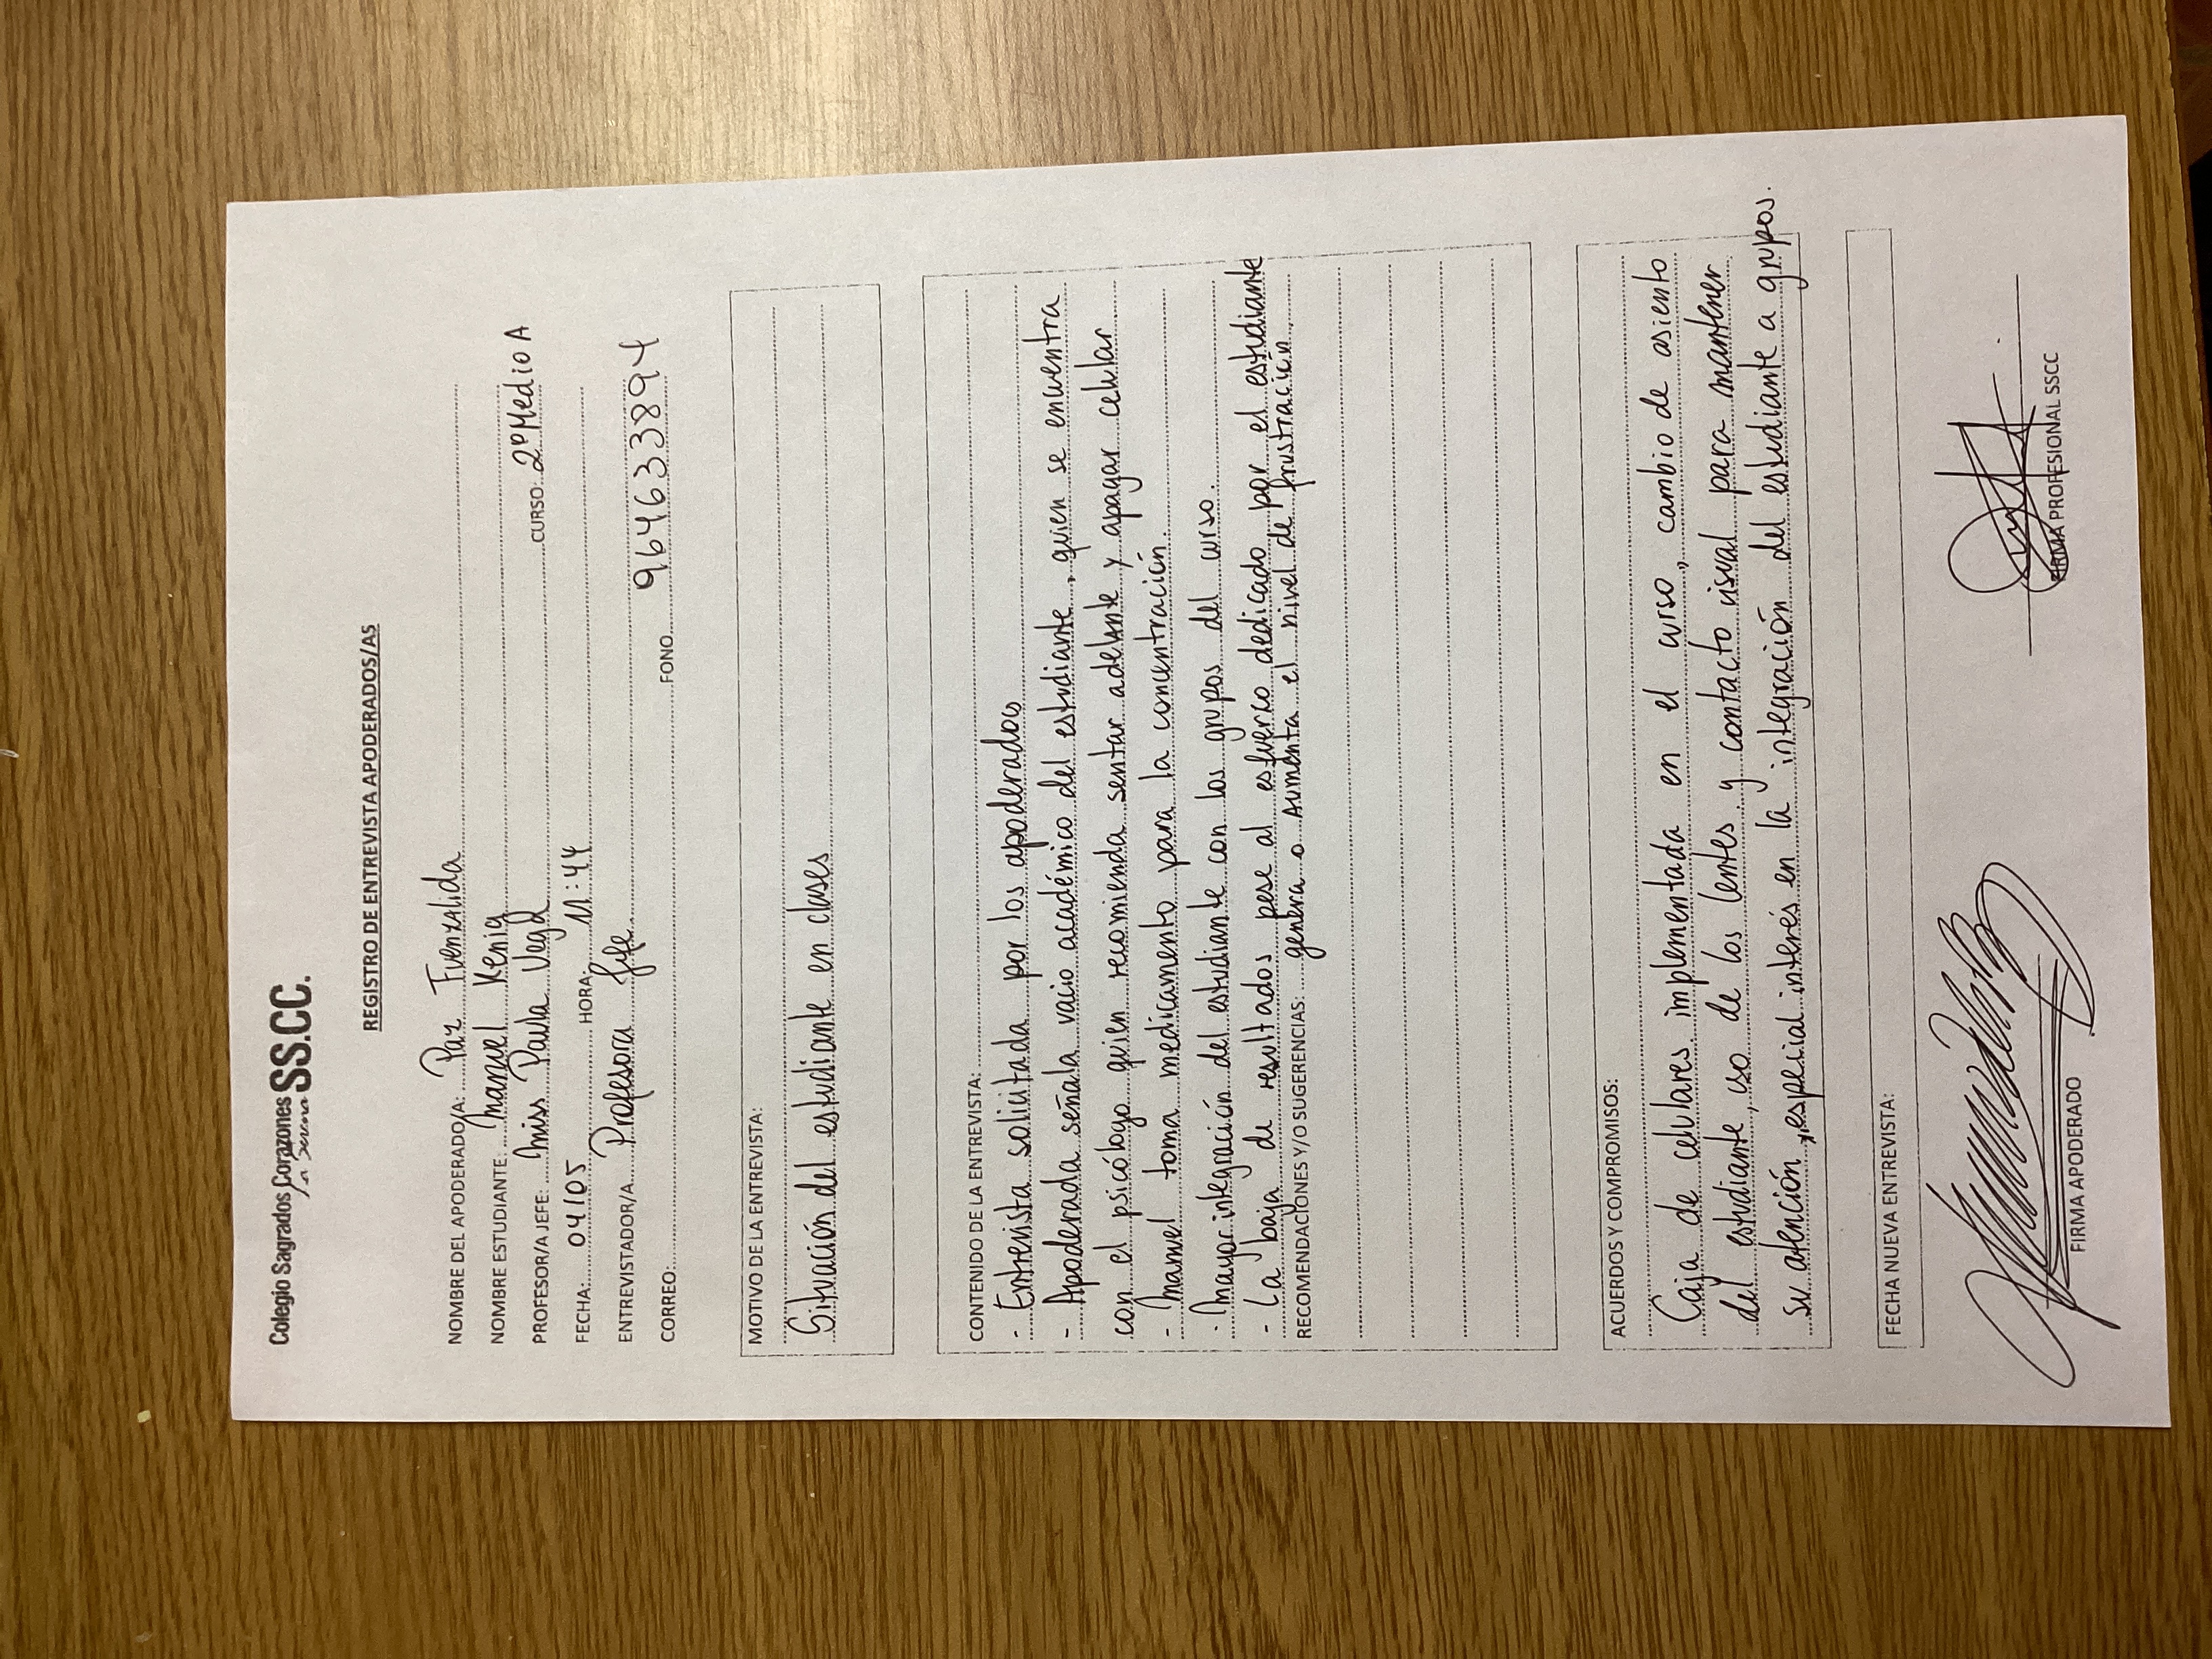 Colegio Sagrados Corazones SS.CC.
La Serena
REGISTRO DE ENTREVISTA APODERADOS/AS
NOMBRE DEL APODERADO/A: Paz Fuenzalida
NOMBRE ESTUDIANTE: Manuel Kenig CURSO: 2º Medio A
PROFESOR/A JEFE: Miss Paula Vega
FECHA: 04/05 HORA: 11:44
ENTREVISTADOR/A: Profesora Jefe
CORREO: FONO 964633894
MOTIVO DE LA ENTREVISTA:
Situación del estudiante en clases
CONTENIDO DE LA ENTREVISTA:
- Entrevista solicitada por los apoderados
- Apoderada señala vacio académico del estudiante, quien se encuentra
con el psicólogo quien recomienda sentar adelante y apagar celular
- Manuel toma medicamento para la concentración.
- Mayor integración del estudiante con los grupos del curso.
- La baja de resultados pese al esfuerzo dedicado por el estudiante
RECOMENDACIONES Y/O SUGERENCIAS: genera o Aumenta el nivel de frustración
ACUERDOS Y COMPROMISOS:
Caja de celulares implementada en el curso, cambio de asiento
del estudiante, uso de los lentes y contacto visual para mantener
su atención, especial interés en la integración del estudiante a grupos.
FECHA NUEVA ENTREVISTA:
FIRMA APODERADO FIRMA PROFESIONAL SSCC